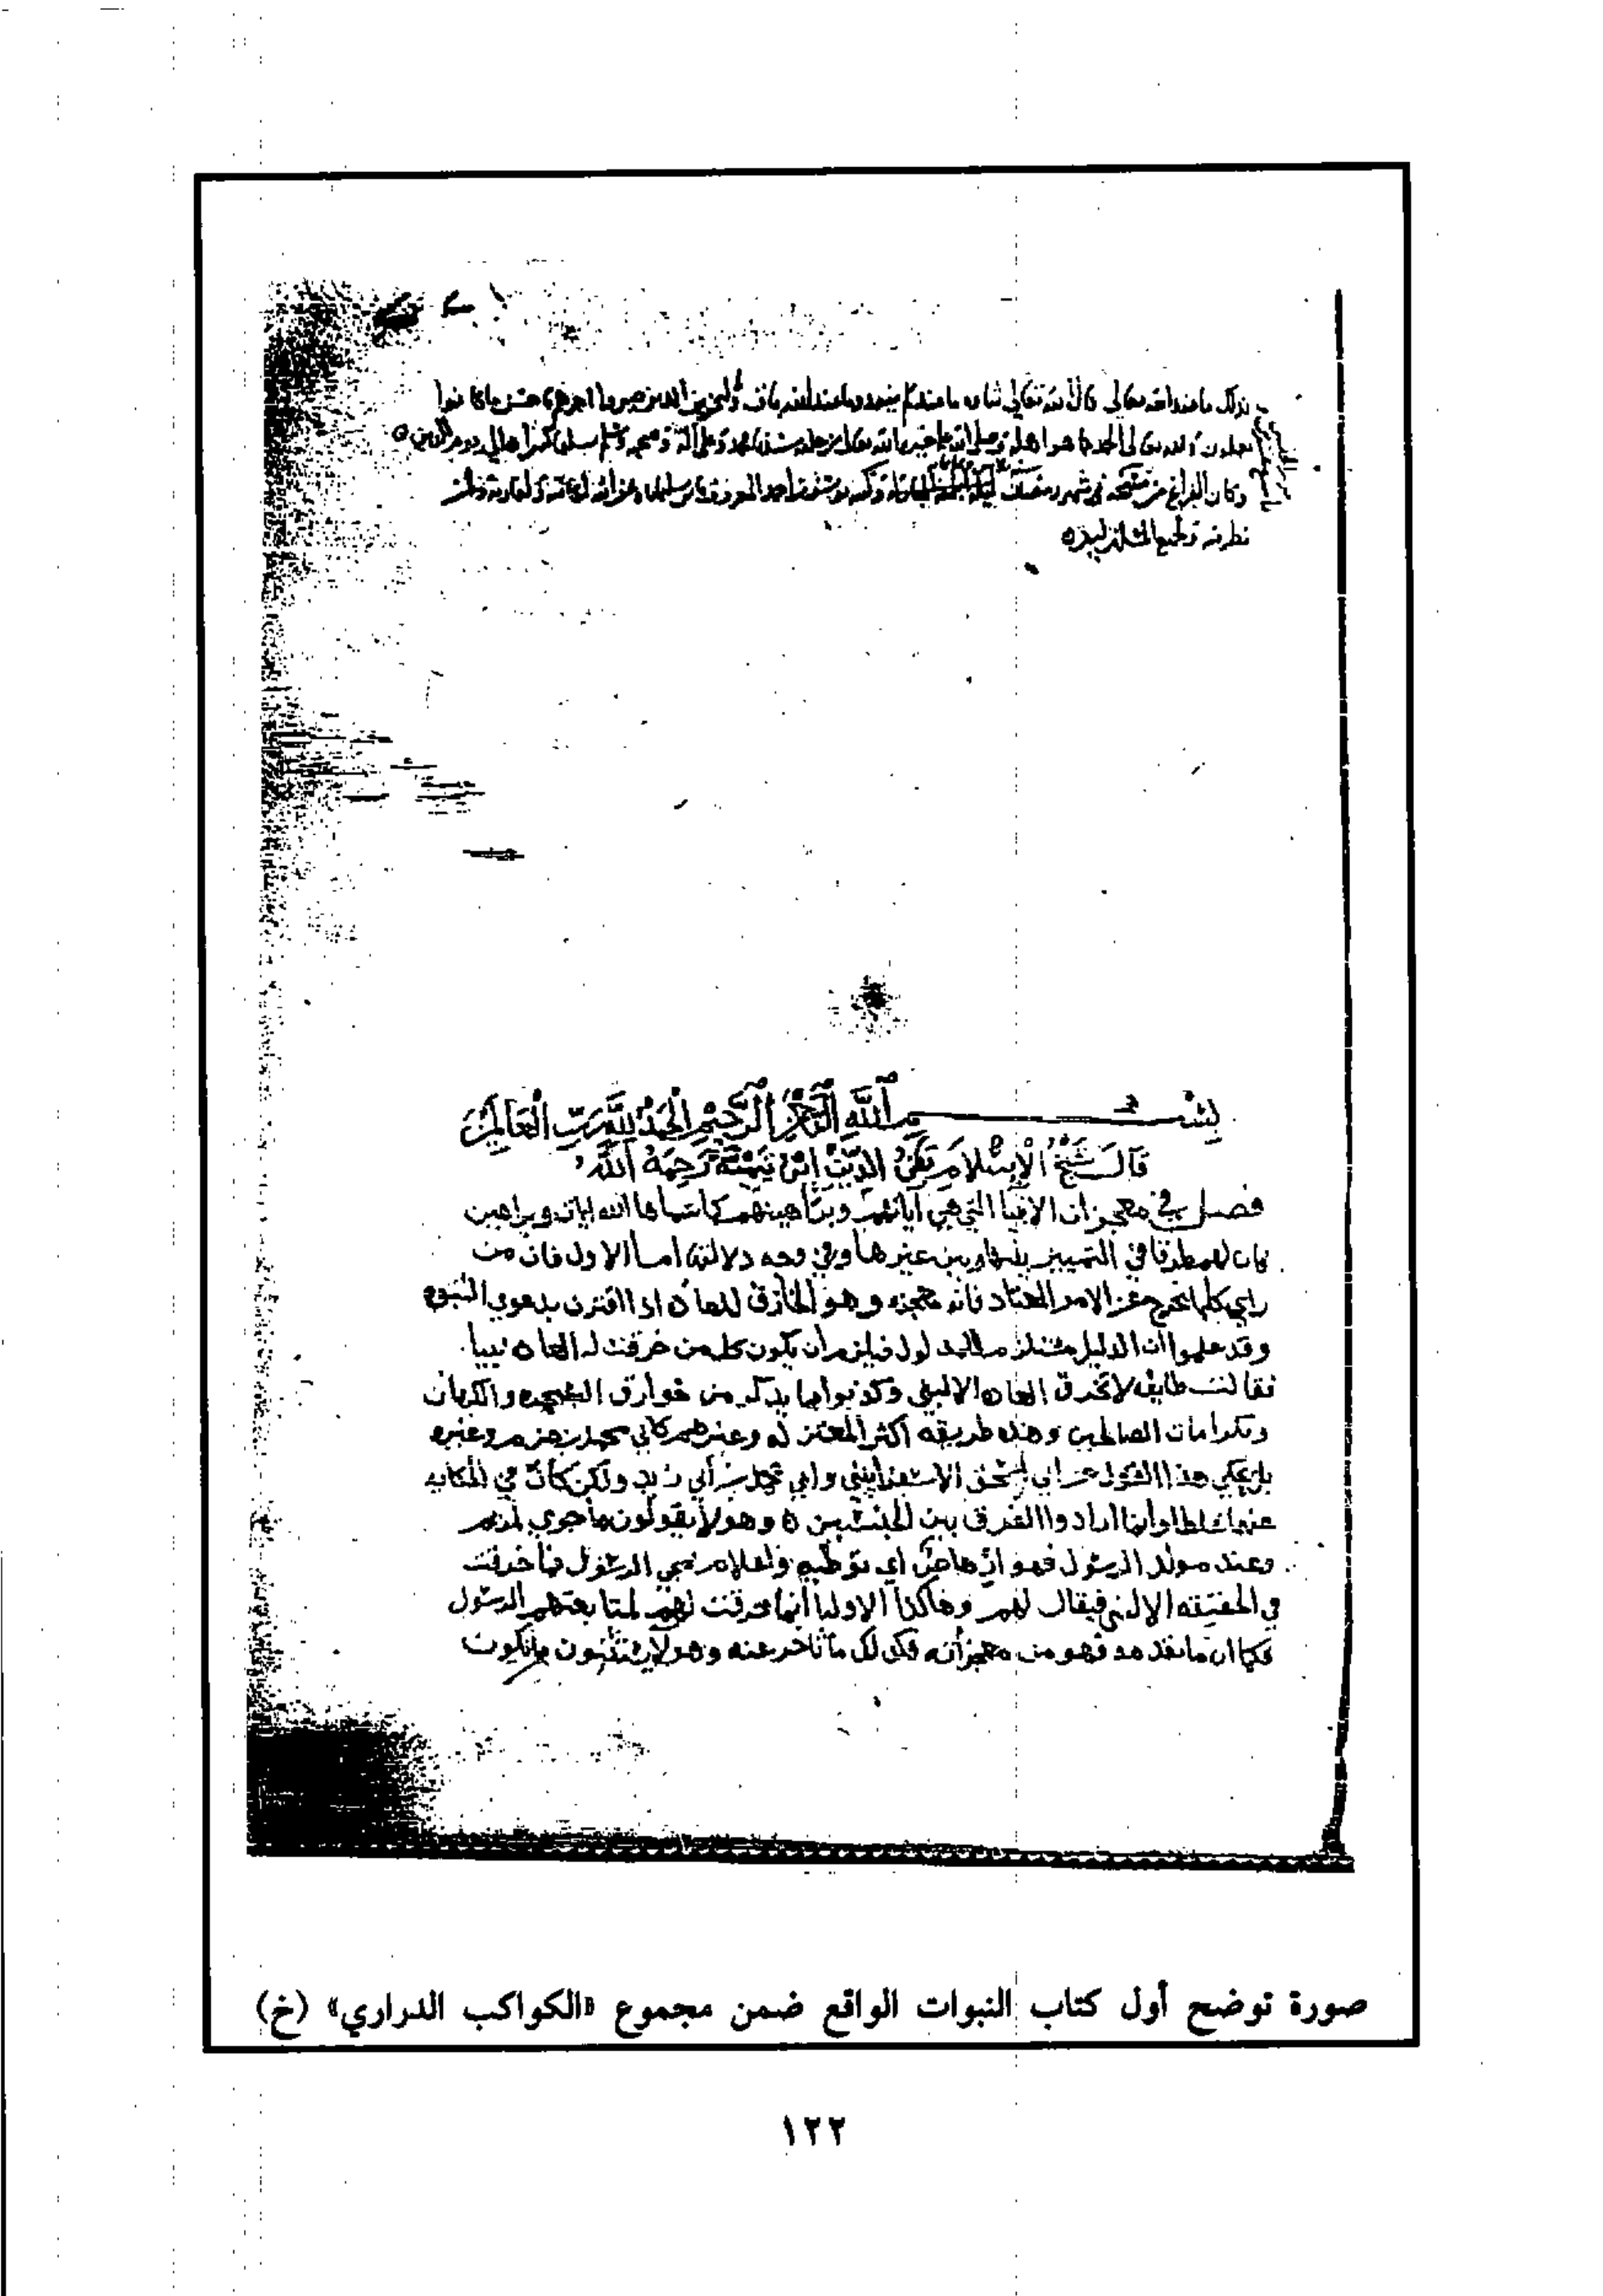 بذلك ما عند الله تعالى قال الله تعالى شانه ما عندكم ينفد وما عند الله باق ولنجزين الذين صبروا اجرهم باحسن ما كانوا
يعملون
وكان الفراغ من في شهر رمضان
نظر فيه ولجميع المسلمين
بسم الله الرحمن الرحيم الحمد لله رب العالمين
قال شيخ الإسلام تقي الدين ابن تيمية رحمه الله
فصل في معجزات الانبيا التي هي آياتهم وبراهينهم كما سماها الله ايات وبراهين
فان للنظر طرقا في التمييز بينها وبين غيرها وفي وجه دلالتها اما الاول فان من
راي كلما يخرج عن الامر المعتاد فانه معجزه وهو الخارق للعاده اذا اقترن بدعوي النبوه
وقد علموا ان الدليل مستلزم للمدلول فيلزم أن يكون كل من خرقت له العاده نبيا
فقالت طايفه لا تخرق العاده الا لنبي وكذبوا بما يذكر من خوارق السحره والكهان
وبكرامات الصالحين وهذه طريقه أكثر المعتزله وغيرهم كابي محمد بن حزم وغيره
بل يحكي هذا القول عن ابي إسحق الاسفرايني وابي محمد بن أبي زيد ولكن كأن في الحكايه
عنهما غلطا وانما ارادوا الفرق بين الجنسين ه وهولا يقولون ما جري لمريم
وعند مولد الرسول فهو إرهاص أي توطيه واعلام بمجي الرسول فما خرقت
في الحقيقه الا لنبي فيقال لهم وهاكذا الاوليا انما خرقت لهم لمتابعتهم الرسول
فكما ان ما تقدمه فهو من معجزاته فكذلك ما تأخر عنه وهولا يستثنون ما يكون
صورة توضح أول كتاب النبوات الواقع ضمن مجموع «الكواكب الدراري» (خ)
١٢٢